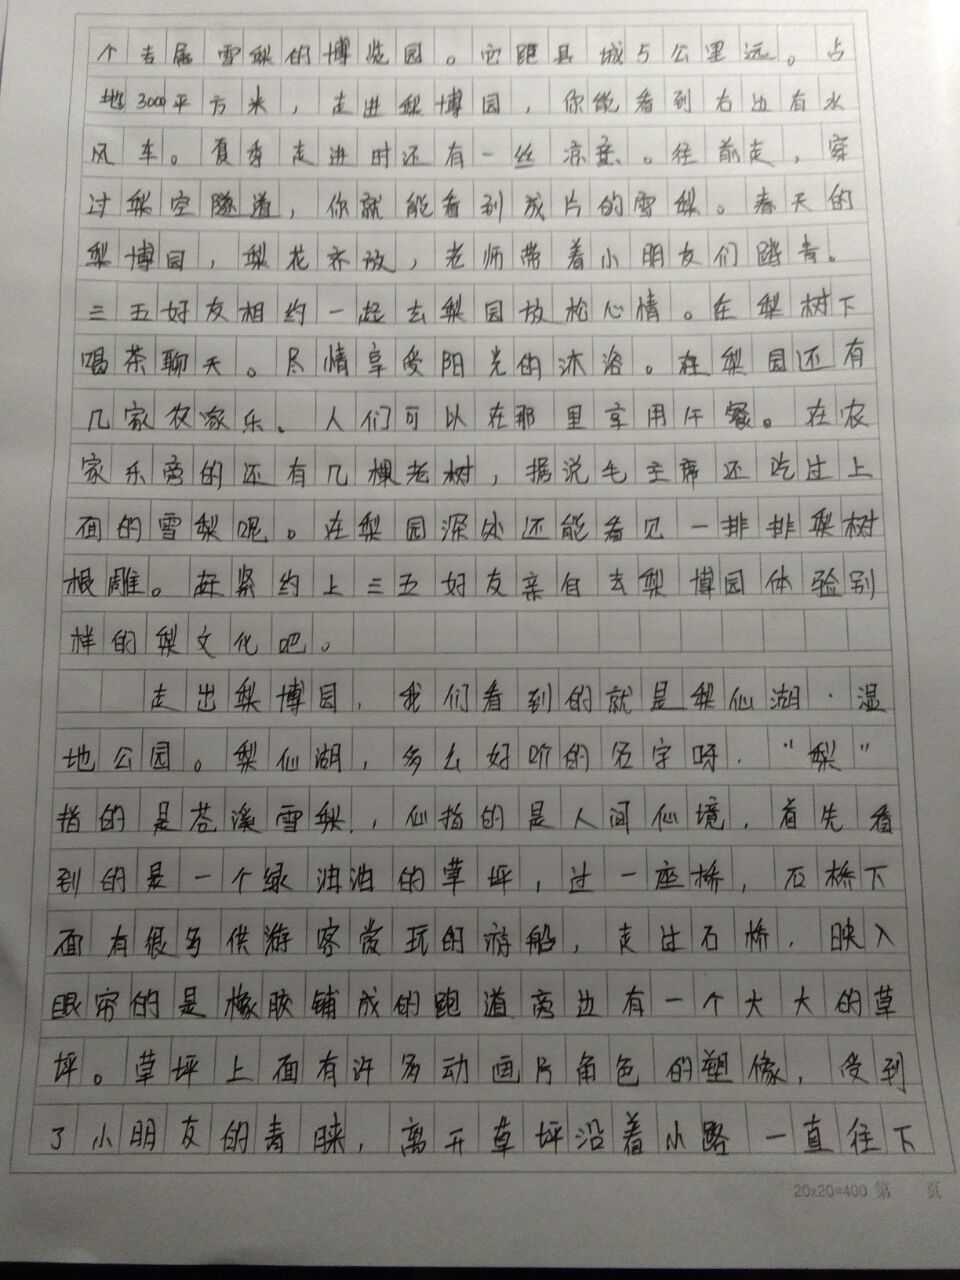 个专属雪梨的博览园。它距县城5公里远。占
地3000平方米，走进梨博园，你能看到右边有水
风车。夏季走进时还有一丝凉意。往前走，穿
过梨空隧道，你就能看到成片的雪梨。春天的
梨博园，梨花齐放，老师带着小朋友们踏青。
三五好友相约一起去梨园放松心情。在梨树下
喝茶聊天。尽情享受阳光的沐浴。在梨园还有
几家农家乐、人们可以在那里享用午餐。在农
家乐旁的还有几棵老树，据说毛主席还吃过上
面的雪梨呢。在梨园深处还能看见一排排梨树
根雕。赶紧约上三五好友亲自去梨博园体验别
样的梨文化吧。
走出梨博园，我们看到的就是梨仙湖·湿
地公园。梨仙湖，多么好听的名字呀．“梨”
指的是苍溪雪梨，仙指的是人间仙境，首先看
到的是一个绿油油的草坪，过一座桥，石桥下
面有很多供游客赏玩的游船，走过石桥，映入
眼帘的是橡胶铺成的跑道旁边有一个大大的草
坪。草坪上面有许多动画片角色的塑像，受到
了小朋友的青睐，离开草坪沿着小路一直往下
20×20=400 第 页